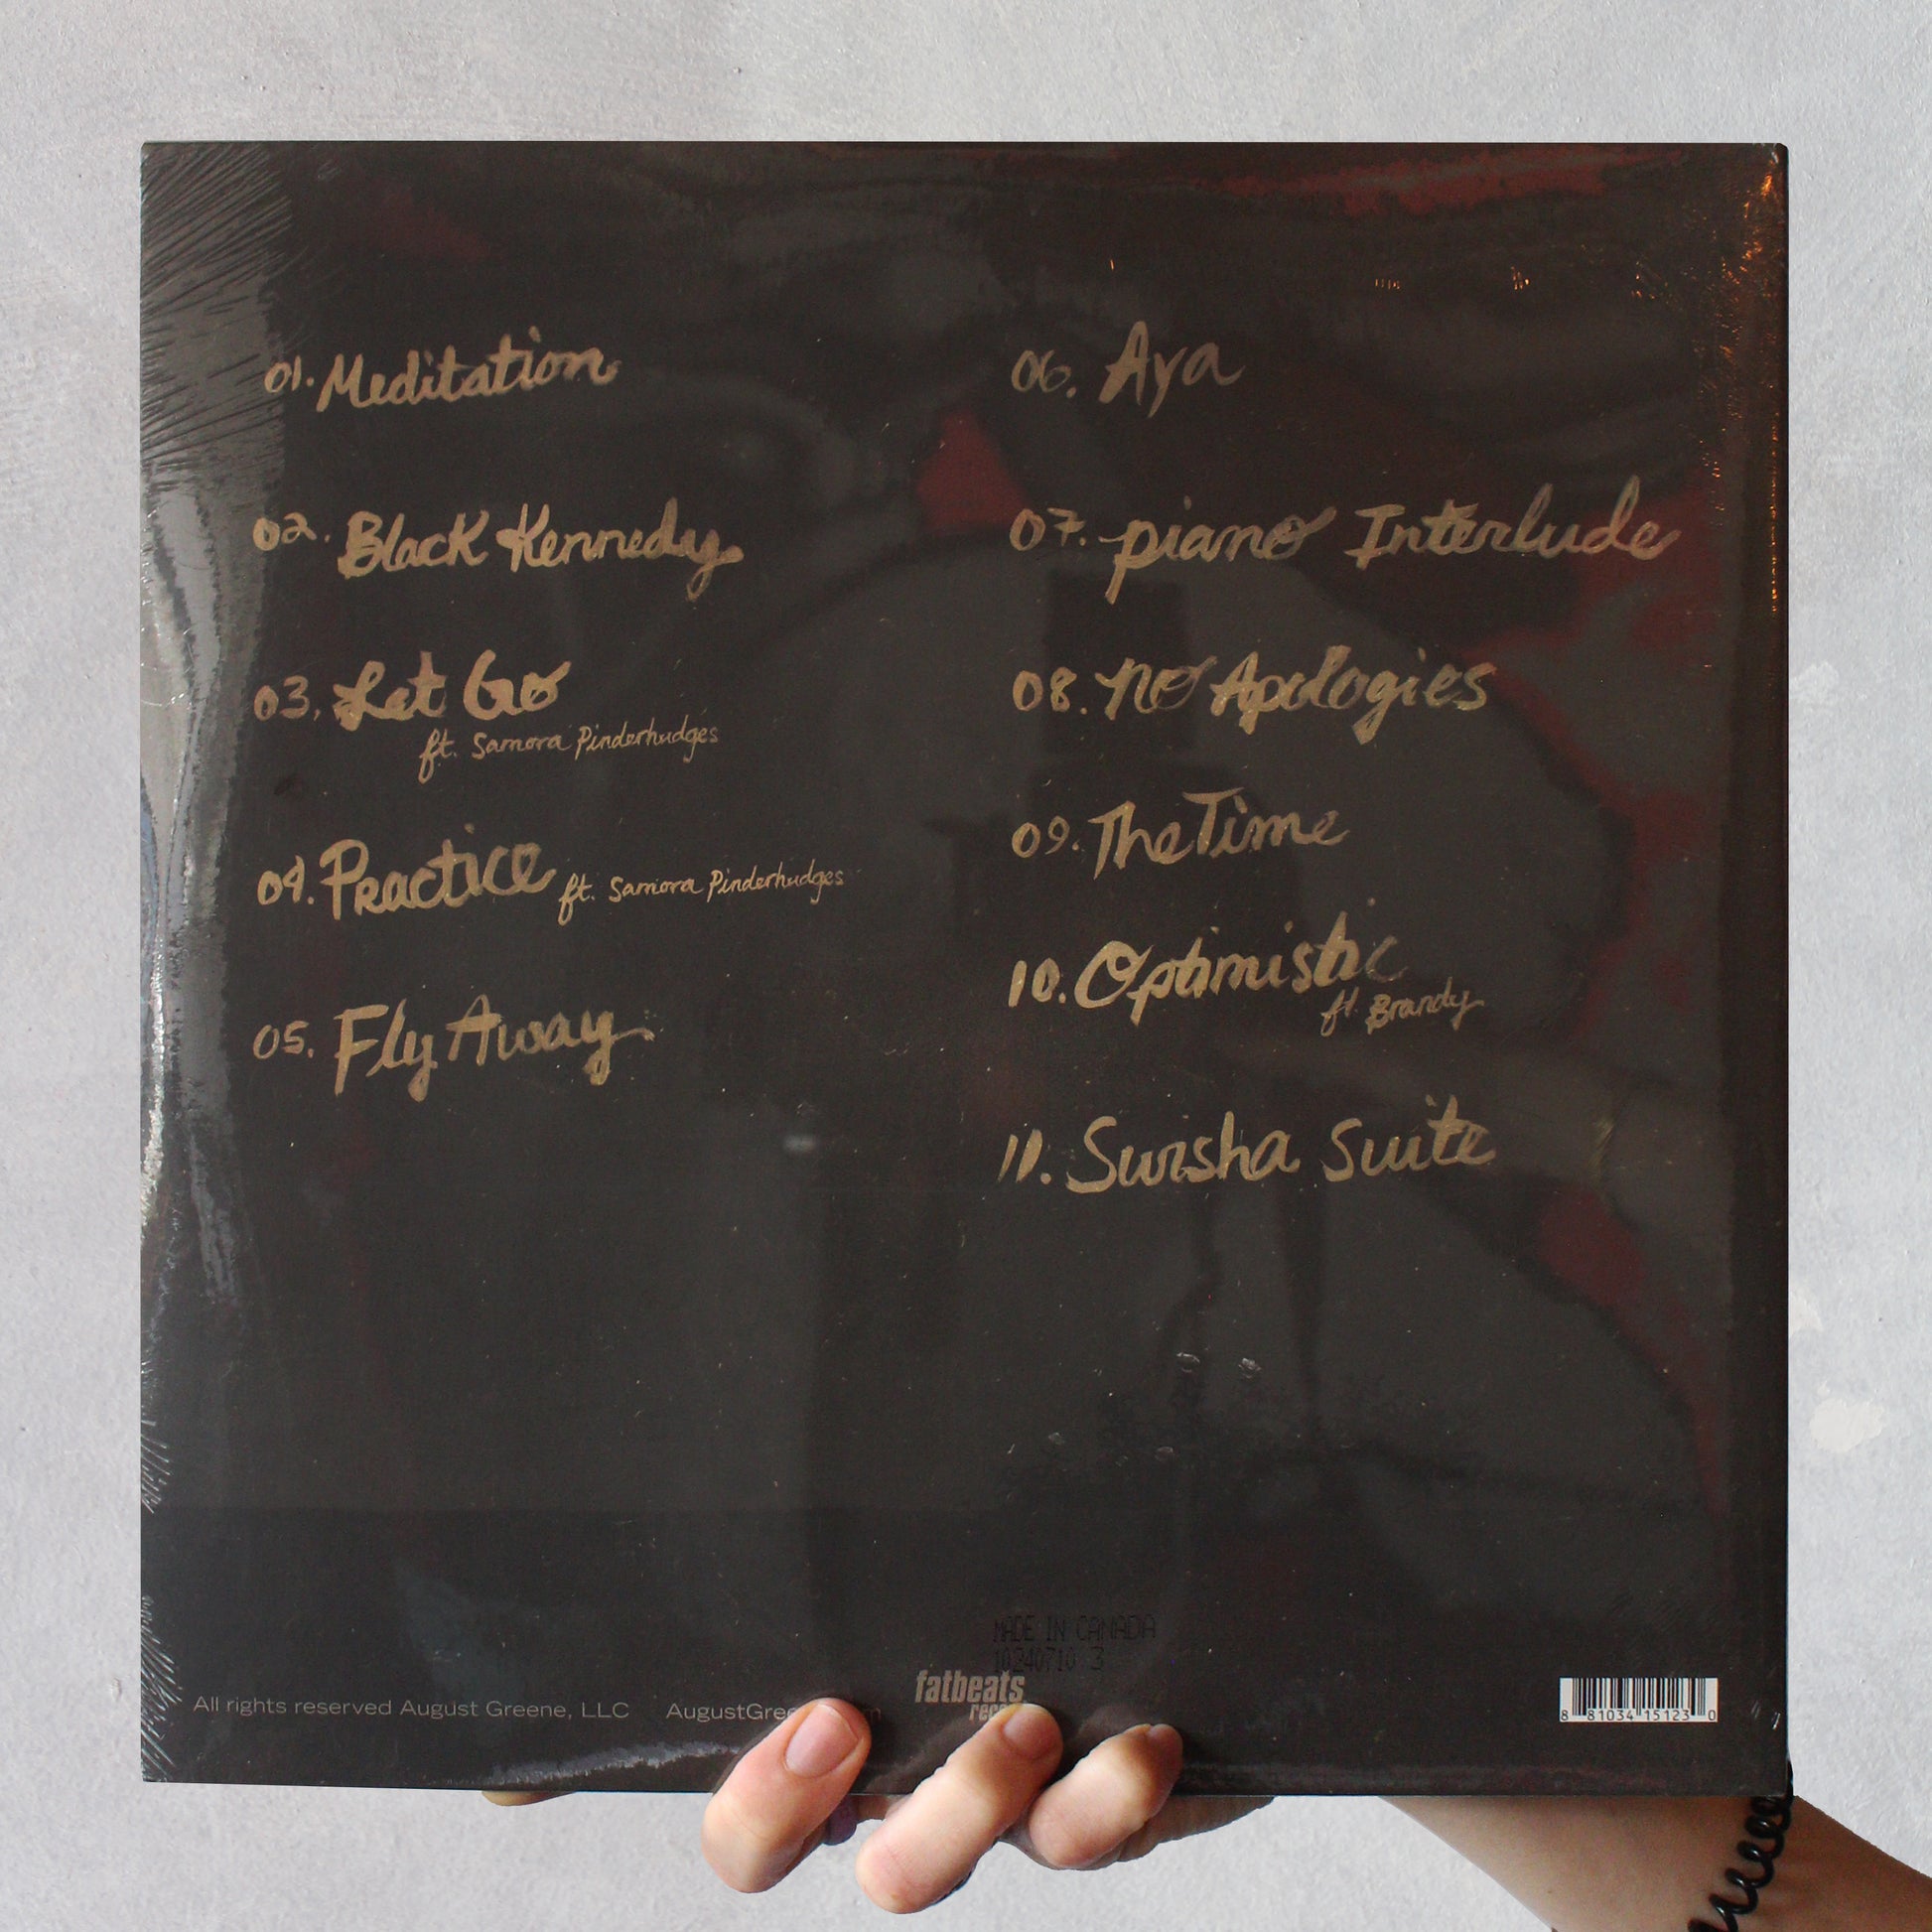 01. Meditation
02. Black Kennedy
03. Let Go
ft. Samora Pinderhudges
04. Practice ft. Samora Pinderhudges
05. Fly Away
06. Aya
07. piano Interlude
08. no Apologies
09. The Time
10. Optimistic
ft. Brandy
11. Swisha Suite
MADE IN CANADA
10240710 3
fatbeats
All rights reserved August Greene, LLC
8 81034 15123 0